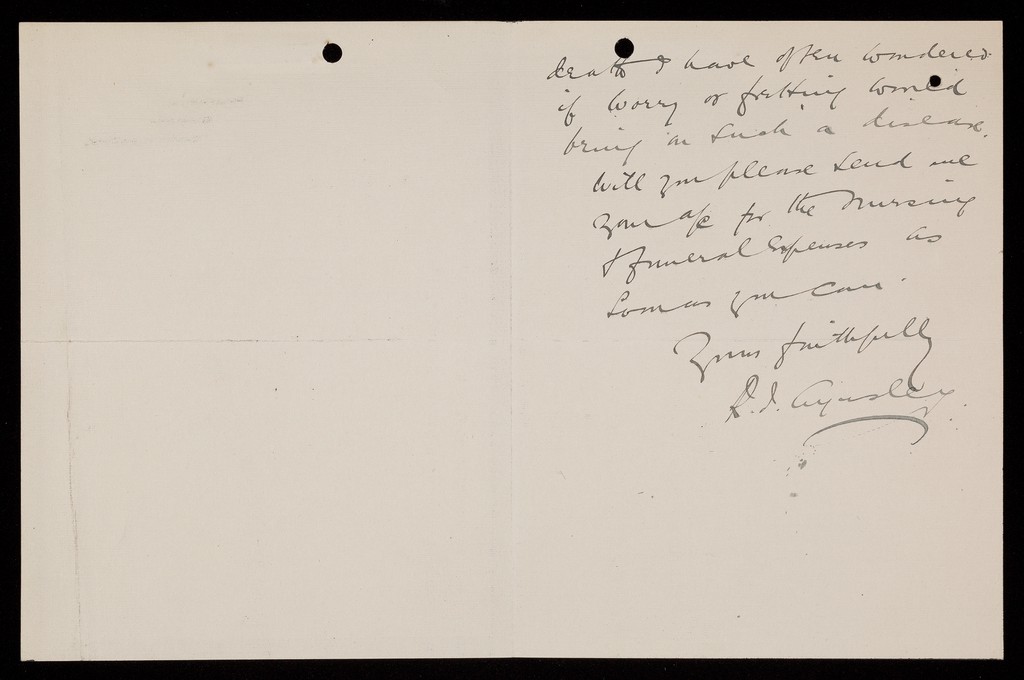 death I have often wondered
if worry or fretting would
bring on such a disease.
Will you please send me
your a/c for the nursing
& funeral expenses as
soon as you can.
Yours faithfully
R. J. Aynsley